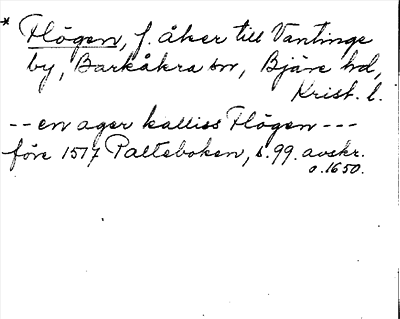 * Flögen, f. åker till Vantinge
by, Barkåkra sn, Bjäre hd,
Krist. l.
-- en ager kalliss Flögen ---
före 1517 Palteboken, s. 99. avskr.
o. 1650.